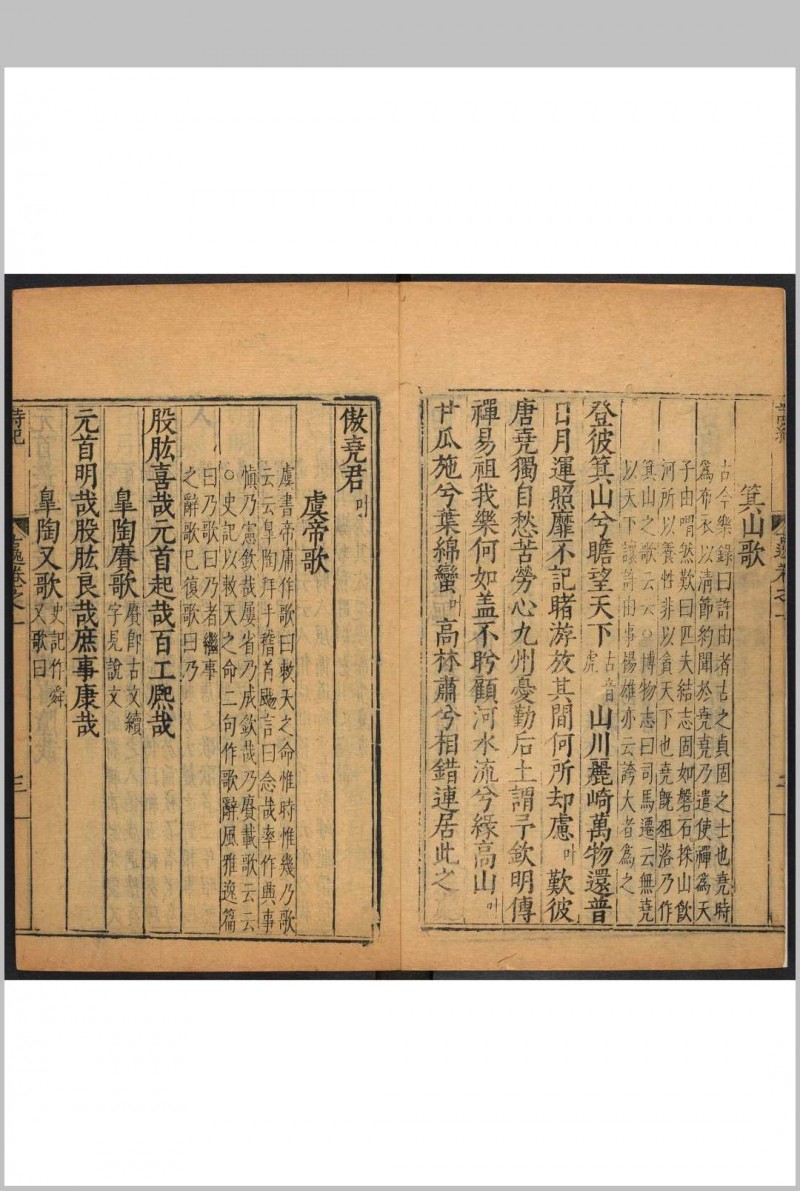 箕山歌
古今樂錄曰許由者古之貞固之士也堯時
爲布衣以清節約聞於堯堯乃遣使禪爲天
子由喟然歎曰匹夫結志固如磐石採山飲
河所以養性非以貪天下也堯既殂落乃作
箕山之歌云云○博物志曰司馬遷云無堯
以天下讓許由事楊雄亦云誇大者爲之
登彼箕山兮瞻望天下古音虎山川麗崎萬物還普
日月運照靡不記睹游放其間何所却慮叶歎彼
唐堯獨自愁苦勞心九州憂勤后土謂予欽明傳
禪易祖我樂何如盖不盻顧河水流兮緣高山叶
甘瓜施兮葉綿蠻叶高林肅兮相錯連居此之
傲堯君叶
虞帝歌
虞書帝庸作歌曰敕天之命惟時惟幾乃歌
云云皐陶拜手稽首颺言曰念哉率作興事
愼乃憲欽哉屢省乃成欽哉乃賡載歌云云
○史記以敕天之命二句作歌辭風雅逸篇
曰乃歌曰乃者繼事
之辭歌已復歌曰乃
股肱喜哉元首起哉百工熈哉
皐陶賡歌賡卽古文續字見說文
元首明哉股肱良哉庶事康哉
皐陶又歌史記作舜又歌曰
詩紀
卷之一
三